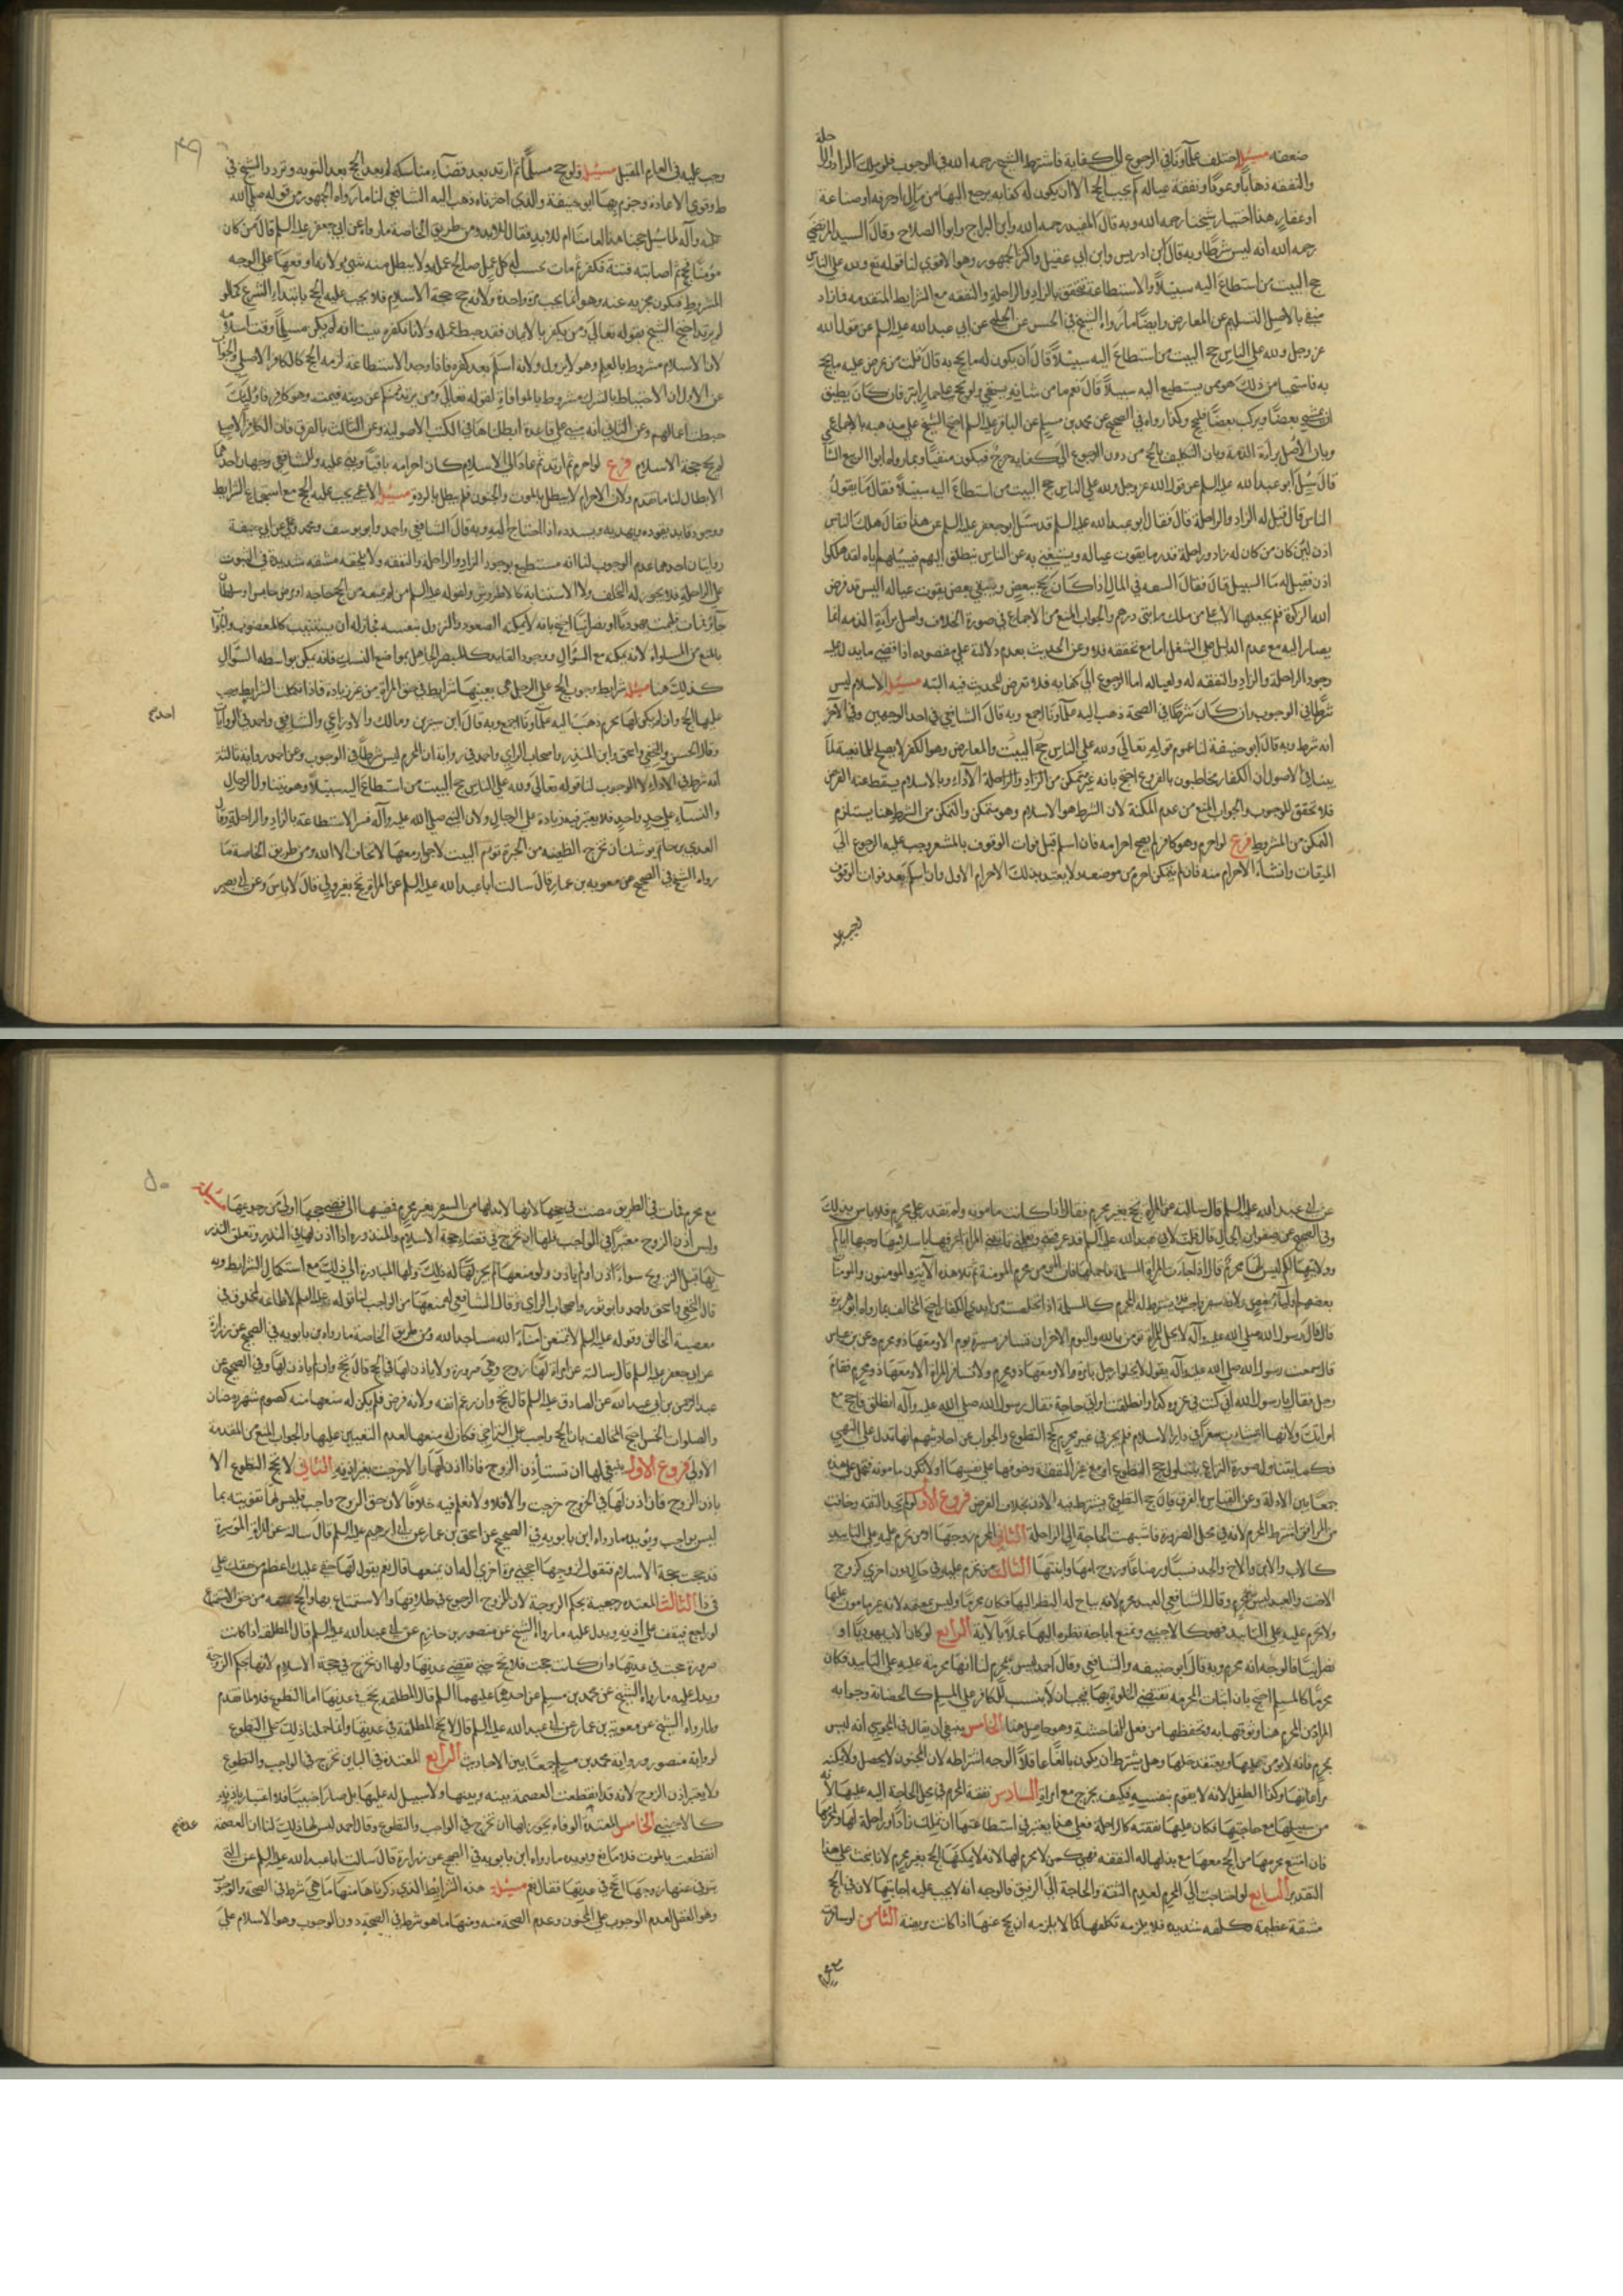 ضعفه مسئلة اختلف علماؤنا في الرجوع الى كفاية فاشترط الشيخ رحمه الله في الوجوب فلو ملك الزاد والراحلة
والنفقة ذهابا وعودا ونفقة عياله لم يجب الحج الا ان يكون له كفاية يرجع اليها من مال او حرفة او صناعة
او عقار هذا اختيار شيخنا رحمه الله وبه قال المفيد رحمه الله وابن البراج وابو الصلاح وقال السيد المرتضى
رحمه الله انه ليس شرطا وبه قال ابن ادريس وابن ابي عقيل واكثر الجمهور وهو الاقوى لنا قوله تع ولله على الناس
حج البيت من استطاع اليه سبيلا والاستطاعة تتحقق بالزاد والراحلة والنفقة مع الشرايط المتقدمة فازاد
منفي بالاصل السليم عن المعارض وايضا ما رواه الشيخ في الحسن عن الحلبي عن ابي عبد الله عليه السلم عن قول الله
عز وجل ولله على الناس حج البيت من استطاع اليه سبيلا قال ان يكون له ما يحج به قال قلت من عرض عليه ما يحج
به فاستحيا من ذلك هو ممن يستطيع اليه سبيلا قال نعم ما من شانه يستحيي ولو يحج على حمار ابتر فان كان يطيق
ان يمشي بعضا ويركب بعضا فليحج وكذا رواه في الصحيح عن محمد بن مسلم عن الباقر عليه السلم احتج الشيخ على مذهبه بالاجماع
وبان الاصل براءة الذمة وبان التكليف بالحج من دون الرجوع الى كفاية حرج فيكون منفيا وبما رواه ابو الربيع
قال سئل ابو عبد الله عليه السلم عن قول الله عز وجل ولله على الناس حج البيت من استطاع اليه سبيلا فقال ما يقول
الناس قال قيل له الزاد والراحلة قال فقال ابو عبد الله عليه السلم قد سئل ابو جعفر عليه السلم عن هذا فقال هلك الناس
اذن لئن كان من كان له زاد وراحلة قدر ما يقوت عياله ويستغني به عن الناس ينطلق اليهم فيسئلهم اياه لقد هلكوا
اذن فقيل له ما السبيل قال فقال السعة في المال اذا كان يحج ببعض ويبقي بعض يقوت عياله اليس قد فرض
الله الزكوة فلم يجعلها الا على من ملك مايتي درهم والجواب المنع من الاجماع في صورة الخلاف واصل براءة الذمة انما
يصار اليه مع عدم الدليل على الشغل اما مع تحققه فلا وعن الحديث بعدم دلالة على مقصوده اذ اقصى ما يدل عليه
وجود الراحلة والزاد والنفقة له ولعياله اما الرجوع الى كفاية فلا تعرض للحديث فيه البتة مسئلة الاسلام ليس
شرطا في الوجوب وان كان شرطا في الصحة ذهب اليه علماؤنا اجمع وبه قال الشافعي في احد الوجهين وفي الآخر
انه شرط وبه قال ابو حنيفة لنا عموم قوله تعالى ولله على الناس حج البيت والمعارض وهو الكفر لا يصلح للمانعية لما
بينا في الاصول ان الكفار مخاطبون بالفروع احتج بانه غير متمكن من الزاد والراحلة الاداء وبالاسلام يسقط عنه الفرض
فلا تحقق للوجوب والجواب المنع من عدم المكنة لان الشرط هو الاسلام وهو متمكن والتمكن من الشرط هنا يستلزم
التمكن من المشروط فرع لو احرم وهو كافر لم يصح احرامه فان اسلم قبل فوات الوقوف بالمشعر وجب عليه الرجوع الى
الميقات وانشاء الاحرام منه فان لم يتمكن احرم من موضعه ولا يعتد بذلك الاحرام الاول وان اسلم بعد فوات الوقوف
وجب عليه في العام المقبل مسئلة ولو حج مسلما ثم ارتد بعد قضاء مناسكه لم يعد الحج بعد التوبة وتردد الشيخ في
ط وقوى الاعادة وجزم بها ابو حنيفة والذي اخترناه ذهب اليه الشافعي لنا ما رواه الجمهور من قوله صلى الله
عليه وآله لما سئل احجنا هذا لعامنا ام للابد فقال للابد ومن طريق الخاصة ما روي عن ابي جعفر عليه السلم قال من كان
مؤمنا فحج ثم اصابته فتنة فكفر ثم مات يحسب له كل عمل صالح عمله ولا يبطل منه شيء ولانه اوقعها على الوجه
المشروط فيكون مجزيه عنه وهو انما يجب مرة واحدة ولانه حج حجة الاسلام فلا يجب عليه الحج بابتداء الشرع كما لو
لم يرتد احتج الشيخ بقوله تعالى ومن يكفر بالايمان فقد حبط عمله ولانا بكفره تبينا انه لم يكن مسلما وقت اسلامه
لان الاسلام مشروط بالعلم وهو لا يزول ولانه اسلم بعد كفره فاذا وجد الاستطاعة لزمه الحج كالكافر الاصلي والجواب
عن الاول ان الاحتباط بالشرك مشروط بالموافاة لقوله تعالى ومن يرتدد منكم عن دينه فيمت وهو كافر فاولئك
حبطت اعمالهم وعن الثاني انه مبني على قاعدة ابطلناها في الكتب الاصولية وعن الثالث بالفرق فان الكافر الاصلي
لم يحج حجة الاسلام فرع لو احرم ثم ارتد ثم عاد الى الاسلام كان احرامه باقيا وبنى عليه وللشافعي وجهان احدهما
الابطال لنا ما تقدم ولان الاحرام لا يبطل بالموت والجنون فلم يبطل بالردة مسئلة الاعمى يجب عليه الحج مع استجماع الشرايط
ووجود قايد يقوده ويهديه ويسدده اذا احتاج اليه وبه قال الشافعي واحمد وابو يوسف ومحمد وعن ابي حنيفة
روايتان احدهما عدم الوجوب لنا انه مستطيع بوجود الزاد والراحلة والنفقة ولا يلحقه مشقة شديدة في الثبوت
على الراحلة فلا يجوز له التخلف ولا الاستنابة كالاطروش ولقوله عليه السلم من لم يمنعه من الحج حاجة او مرض حابس او سلطان
جائر فمات فليمت يهوديا او نصرانيا احتج بانه لا يمكنه الصعود والنزول بنفسه فجاز له ان يستنيب كالمعضوب والجواب
بالمنع من المساواة لانه يمكنه مع السؤال ووجود القايد كالمبصر الجاهل بمواضع النسك فانه يمكن بواسطة السؤال
كذلك هنا مسئلة شرايط وجوب الحج على الرجل هي بعينها شرايط في حق المراة من غير زيادة فاذا تكملت الشرايط يجب
عليها الحج وان لم يكن لها محرم ذهب اليه علماؤنا اجمع وبه قال ابن سيرين ومالك والاوزاعي والشافعي واحمد في الروايات
وقال الحسن والنخعي واسحق وابن المنذر واصحاب الراي واحمد في رواية ان المحرم ليس شرطا في الوجوب وعن احمد رواية ثالثة
انه شرط في الاداء لا الوجوب لنا قوله تعالى ولله على الناس حج البيت من استطاع اليه سبيلا وهو يتناول الرجال
والنساء على حد واحد فلا يعتبر فيه زيادة على الرجال ولان النبي صلى الله عليه وآله فسر الاستطاعة بالزاد والراحلة وقال
العدي بن حاتم يوشك ان تخرج الظعينة من الحيرة تؤم البيت لا جوار معها لا تخاف الا الله ومن طريق الخاصة ما
رواه الشيخ في الصحيح عن معوية بن عمار قال سالت ابا عبد الله عليه السلم عن المراة تحج بغير ولي قال لا باس وعن ابي بصير
عن ابي عبد الله عليه السلم قال سالته عن المراة تحج بغير محرم فقال اذا كانت مامونة ولم تقدر على محرم فلا باس بذلك
وفي الصحيح عن صفوان الجمال قال قلت لابي عبد الله عليه السلم قد عرفتني بعملي تاتيني المراة اعرفها باسلامها وحبها اياكم
وولايتها لكم ليس لها محرم قال اذا جاءت المراة المسلمة فاحملها فان المؤمن محرم المؤمنة ثم تلا هذه الآية والمؤمنون والمؤمنات
بعضهم اولياء بعض ولانه سفر واجب فلا يشترط له المحرم كالمسلمة اذا تخلصت من ايدي الكفار احتج المخالف بما رواه ابو هريرة
قال قال رسول الله صلى الله عليه وآله لا يحل لامراة تؤمن بالله واليوم الاخر ان تسافر مسيرة يوم الا ومعها ذو محرم وعن ابن عباس
قال سمعت رسول الله صلى الله عليه وآله يقول لا يخلون رجل بامراة الا ومعها ذو محرم ولا تسافر المراة الا ومعها ذو محرم فقام
رجل فقال يا رسول الله اني كنت في غزوة كذا وانطلقت امراتي حاجة فقال رسول الله صلى الله عليه وآله انطلق فاحجج مع
امراتك ولانها انشات سفرا في دار الاسلام فلم يجز في غير محرم كحج التطوع والجواب عن احاديثهم انها تدل على النهي
جمعا بين الادلة وعن القياس بالفرق فان حج التطوع يشترط فيه الاذن بخلاف الفرض فروع الاول لو لم تجد الثقة وخافت
من الرافق اشترط المحرم لانه في محل الضرورة فاشبهت الحاجة الى الراحلة الثاني المحرم زوجها او من تحرم عليه على التابيد
كالاب والابن والاخ والجد نسبا ورضاعا وزوج امها وابنتها الثالث من تحرم عليه في حال دون اخرى كزوج
الاخت والعبد ليس بمحرم وقال الشافعي العبد محرم لانه يباح له النظر اليها فكان محرما وليس بمعتمد لانه غير مامون عليها
ولا تحرم عليه على التابيد فهو كالاجنبي ويمنع اباحة نظره اليها عملا بالآية الرابع لو كان الاب يهوديا او
نصرانيا فالوجه انه محرم وبه قال ابو حنيفة والشافعي وقال احمد ليس بمحرم لنا انها محرمة عليه على التابيد فكان
محرما كالمسلم احتج بان اثبات المحرمية تقتضي الخلوة بها فيجب ان لا يثبت للكافر على المسلم كالحضانة وجوابه
المراد من المحرم هنا وثوقها به وتحفظها من فعل الفاحشة وهو حاصل هنا الخامس ينبغي ان يقال في المجوسي انه ليس
بمحرم فانه لا يؤمن عليها ويعتقد حلها وهل يشترط ان يكون بالغا عاقلا الوجه اشتراطه لان المجنون لا يحصل ولا يمكنه
مراعاتها وكذا الطفل لانه لا يقوم بنفسه فكيف يخرج مع امراة السادس نفقة المحرم في محل الحاجة اليه عليها لانه
من سبيلها مع حاجتها فكان عليها نفقته كالراحلة فعلى هذا يعتبر في استطاعتها ان يملك زادا وراحلة لها ولمحرمها
فان امتنع محرمها من الحج معها مع بذلها له النفقة فهي كمن لا محرم لها لانه لا يمكنها الحج بغير محرم لانا نبحث على هذا
التقدير السابع لو احتاجت الى المحرم لعدم الثقة والحاجة الى الرفيق فالوجه انه لا يجب عليه اجابتها لان في الحج
مشقة عظيمة وكلفة شديدة فلا يلزمه تكلفها كما لا يلزمه ان يحج عنها اذا كانت مريضة الثامن لو سافرت
مع محرم فمات في الطريق مضت في حجها لانها لا بد لها من السفر بغير محرم فمضيها الى قضاء حجها اولى من رجوعها مسئلة
وليس اذن الزوج معتبرا في الواجب فلها ان تخرج في قضاء حجة الاسلام والمنذورة اذا اذن لها في النذر وتعلق النذر
بها قبل التزويج سواء اذن او لم ياذن ولو منعها لم يجز له ذلك ولها المبادرة الى ذلك مع استكمال الشرايط وبه
قال النخعي واسحق واحمد وابو ثور واصحاب الراي وقال الشافعي له منعها من الواجب لنا قوله عليه السلم لا طاعة لمخلوق في
معصية الخالق وقوله عليه السلم لا تمنعوا اماء الله مساجد الله ومن طريق الخاصة ما رواه ابن بابويه في الصحيح عن زرارة
عن ابي جعفر عليه السلم قال سالته عن امراة لها زوج وهي صرورة ولا ياذن لها في الحج قال تحج وان لم ياذن لها وفي الصحيح عن
عبد الرحمن بن ابي عبد الله عن الصادق عليه السلم قال تحج وان رغم انفه ولانه فرض فلم يكن له منعها منه كصوم شهر رمضان
والصلوات الخمس احتج المخالف بان الحج واجب على التراخي فكان له منعها لعدم التعيين عليها والجواب المنع من المقدمة
الاولى فروع الاول ينبغي لها ان تستاذن الزوج فاذا اذن لها والا خرجت بغير اذنه الثاني لا تحج التطوع الا
باذن الزوج فان اذن لها في الخروج خرجت والا فلا ولا نعلم فيه خلافا لان حق الزوج واجب فليس لها تفويته بما
ليس بواجب ويؤيده ما رواه ابن بابويه في الصحيح عن اسحق بن عمار عن ابي ابراهيم عليه السلم قال سالته عن المراة الموسرة
قد حجت حجة الاسلام فتقول لزوجها احجني مرة اخرى اله ان يمنعها قال نعم يقول لها حقي عليك اعظم من حقك علي
في ذا الثالث المعتدة رجعية بحكم الزوجة لان للزوج الرجوع في طلاقها والاستمتاع بها والحج يمنعه من حق الاستمتاع
لو راجع فيقف على اذنه ويدل عليه ما رواه الشيخ عن منصور بن حازم عن ابي عبد الله عليه السلم قال المطلقة اذا كانت
صرورة حجت في عدتها وان كانت حجت فلا تحج حتى تقضي عدتها ولها ان تخرج في حجة الاسلام لانها بحكم الزوجة
ويدل عليه ما رواه الشيخ عن محمد بن مسلم عن احدهما عليهما السلم قال المطلقة تحج في عدتها اما التطوع فلا لما تقدم
ولما رواه الشيخ عن معوية بن عمار عن ابي عبد الله عليه السلم قال لا تحج المطلقة في عدتها وانما حملنا ذلك على التطوع
لرواية منصور ورواية محمد بن مسلم جمعا بين الاحاديث الرابع المعتدة في الباين تخرج في الواجب والتطوع
ولا يعتبر اذن الزوج لانه قد انقطعت العصمة بينه وبينها ولا سبيل له عليها بل صار اجنبيا فلا اعتبار باذنه
كالاجنبي الخامس المعتدة للوفاة يجوز لها ان تخرج في الواجب والتطوع وقال احمد ليس لها ذلك لنا ان العصمة
انقطعت بالموت فلا مانع ويؤيده ما رواه ابن بابويه في الصحيح عن زرارة قال سالت ابا عبد الله عليه السلم عن التي
يتوفى عنها زوجها اتحج في عدتها فقال نعم مسئلة هذه الشرايط الذي ذكرناها منها ما هي شرط في الصحة والوجوب
وهو العقل لعدم الوجوب على المجنون وعدم الصحة منه ومنها ما هو شرط في الصحة دون الوجوب وهو الاسلام على